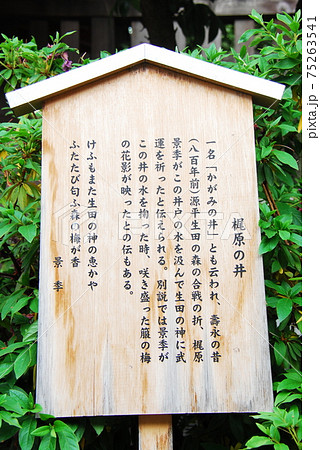 梶原の井
一名「かがみの井」とも云われ、壽永の昔
(八百年前)源平生田の森の合戦の折、梶原
景季がこの井戸の水を汲んで生田の神に武
運を祈ったと伝えられる。別説では景季が
この井の水を掬った時、咲き盛った箙の梅
の花影が映ったとの伝もある。
けふもまた生田の神の恵かや
ふたたび匂ふ森の梅が香
景季
pixta.jp - 75263541